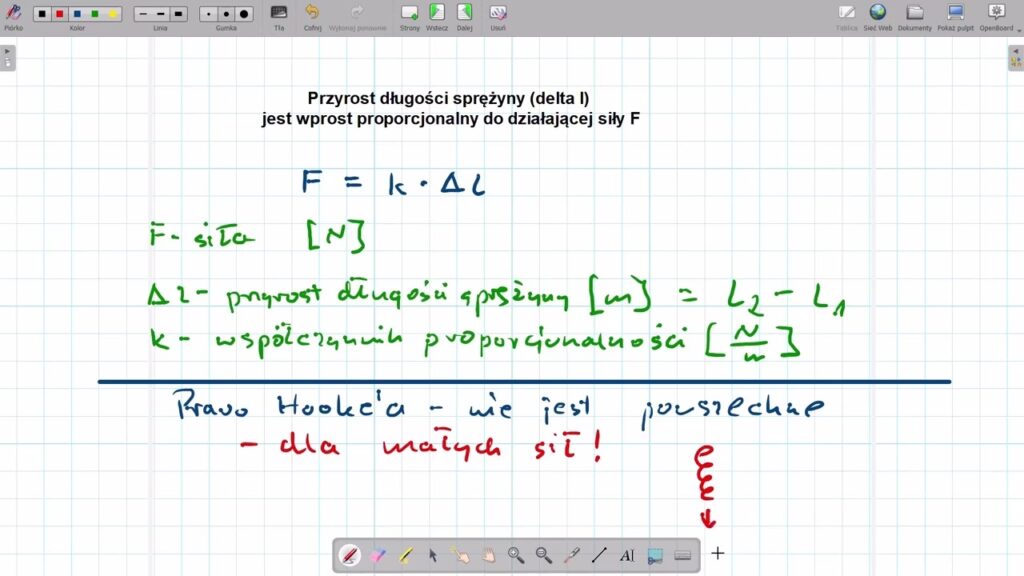 Piórko Kolor Linia Gumka Tła Cofnij Wykonaj ponownie Strony Wstecz Dalej Usuń Tablica Sieć Web Dokumenty Pokaż pulpit OpenBoard
Przyrost długości sprężyny (delta l)
jest wprost proporcjonalny do działającej siły F
F = k · Δ l
F - siła [N]
Δ l - przyrost długości sprężyny [m] = L₂ - L₁
k - współczynnik proporcjonalności [N/m]
Prawo Hooke'a - nie jest powszechne
- dla małych sił!
AI